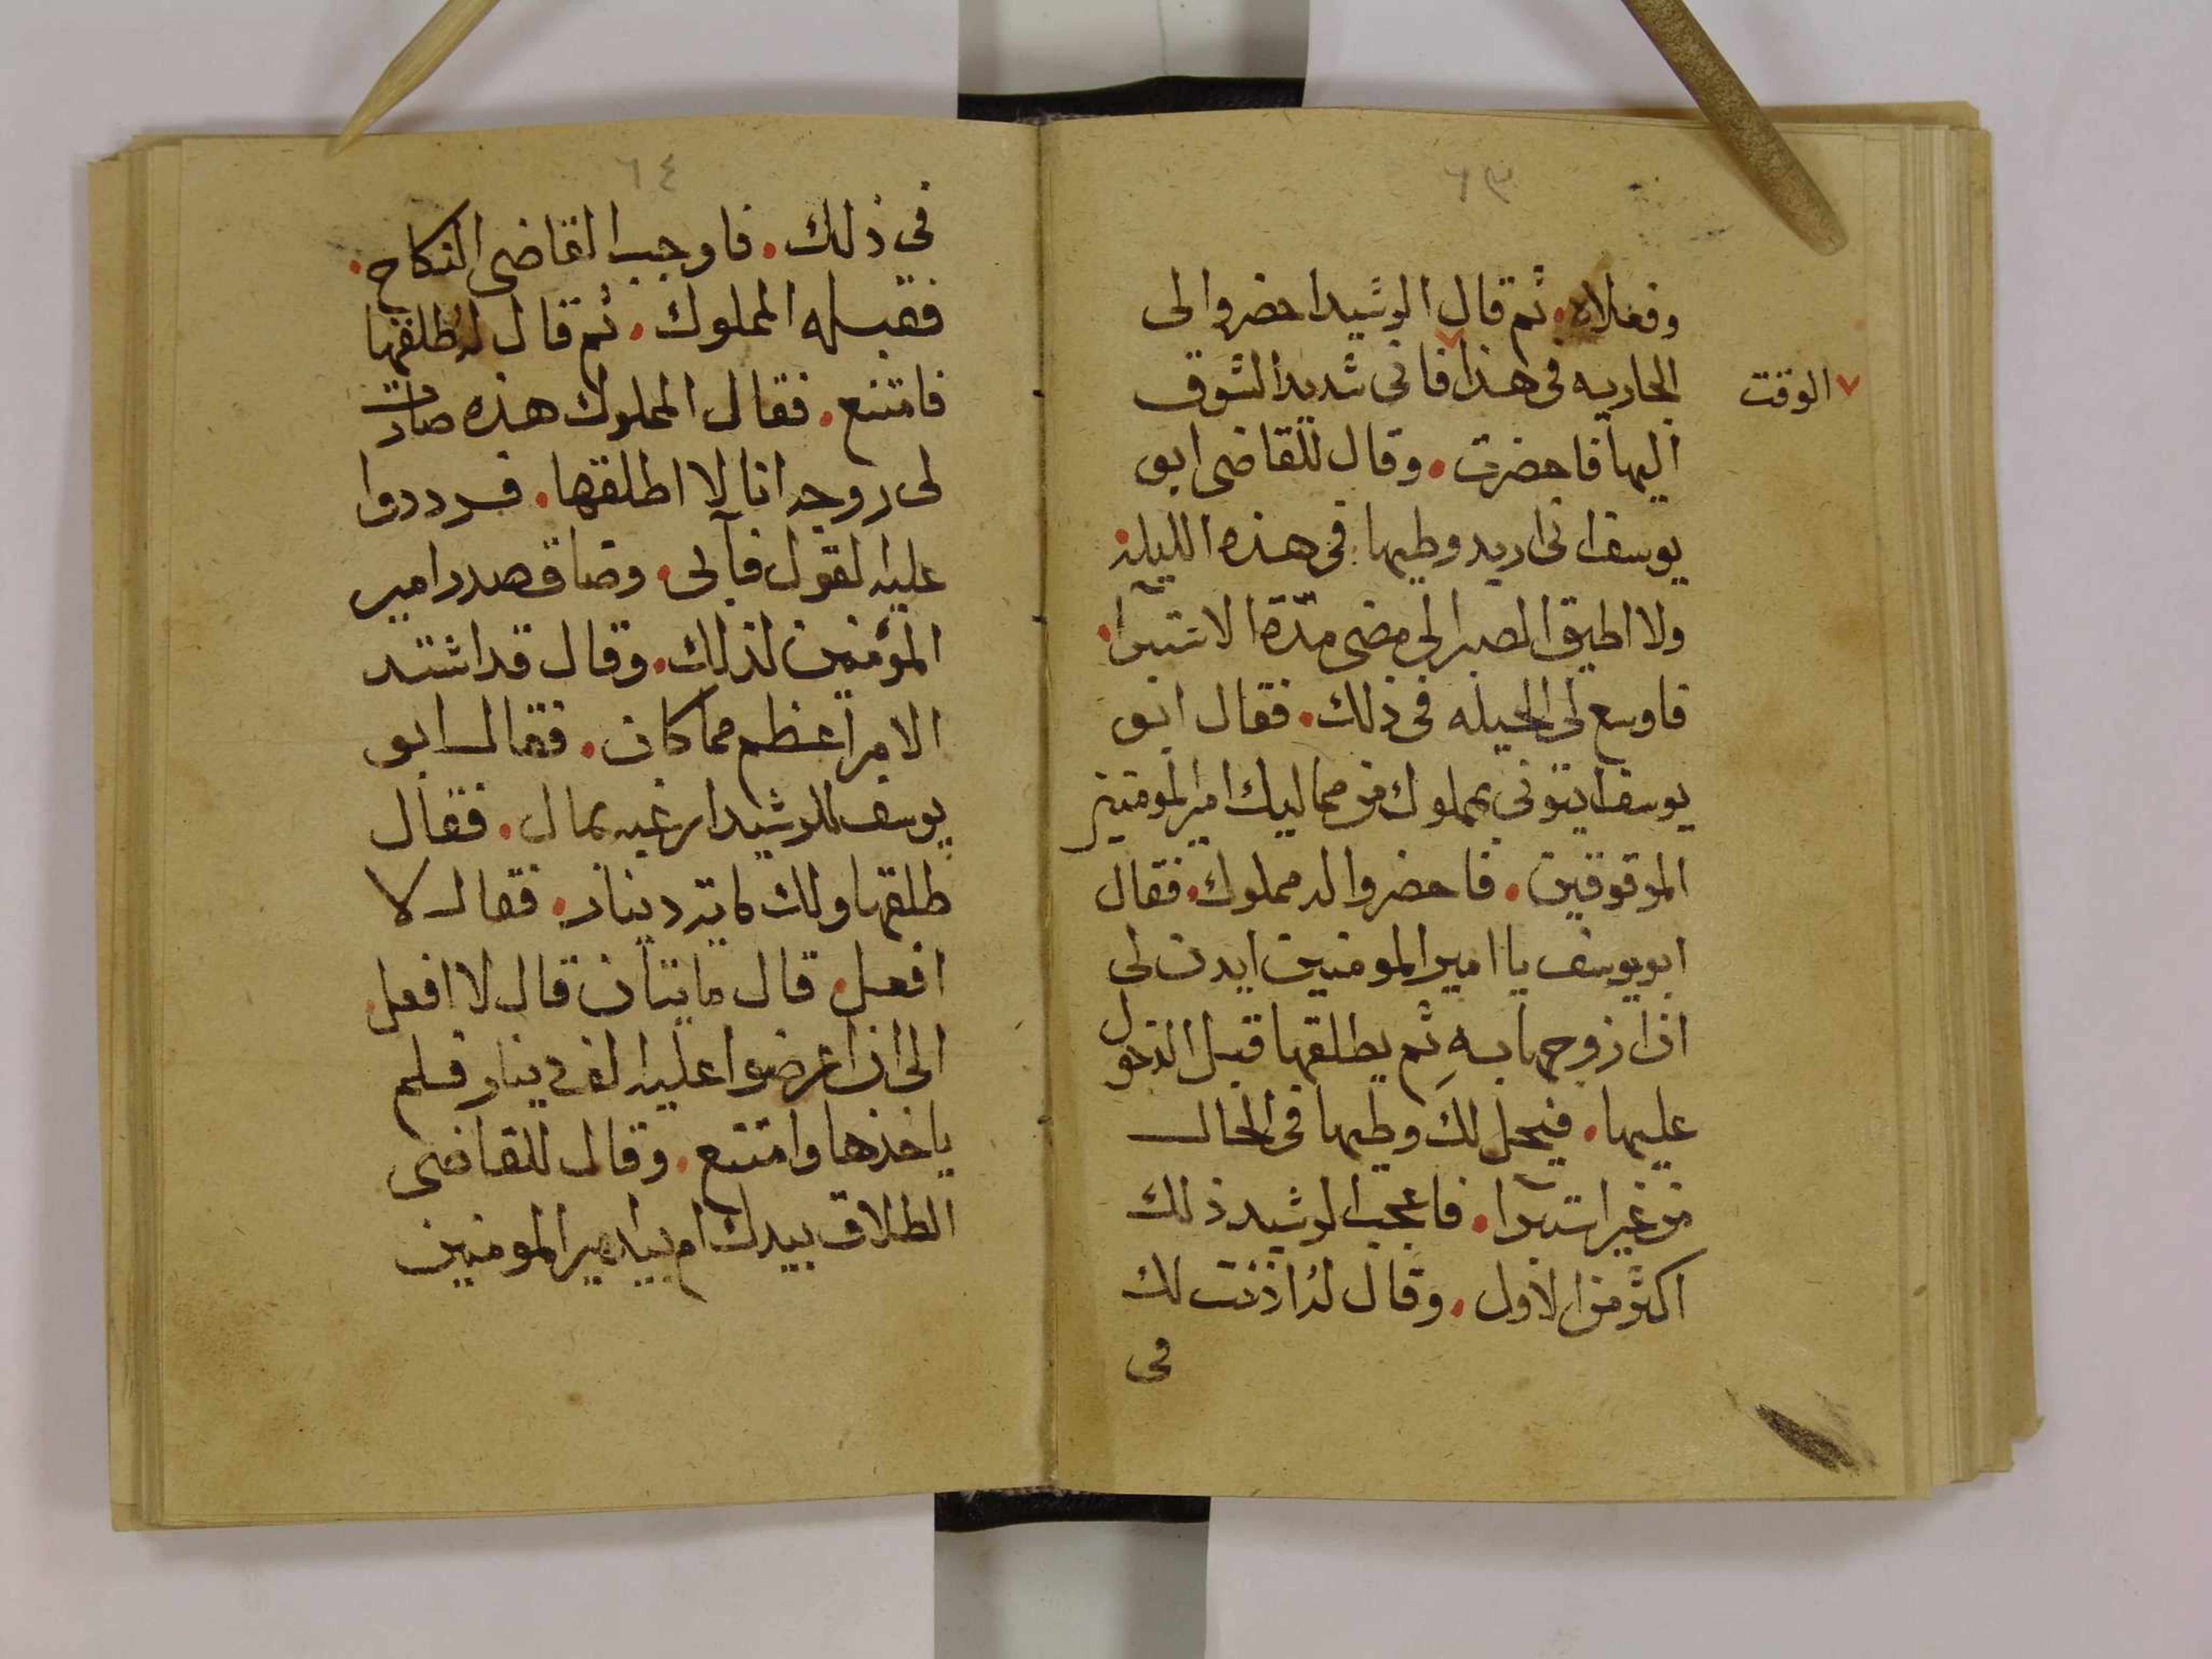 ٦٣
وفعلاه. ثم قال الرشيد احضروا لى
الجاريه فى هذا فانى شديد الشوق
الوقت
اليها فاحضرت. وقال للقاضى ابو
يوسف انى اريد وطيها فى هذه الليلة.
ولا اطيق الصبر الى مضى مدّة الاستبرآ.
فاوسع لى الحيله فى ذلك. فقال ابو
يوسف ايتونى بمملوك من مماليك امير المومنين
الموقوفين. فاحضروا له مملوك. فقال
ابو يوسف يا امير المومنين ايدن لى
ان ازوجها به ثم يطلقها قبل الدخول
عليها. فيحل لك وطيها فى الحال
من غير استبرآ. فاعجب الرشيد ذلك
اكثر من الاول. وقال له اذنت لك
فى
٦٤
فى ذلك. فاوجب القاضى النكاح.
فقبله المملوك. ثم قال له طلقها
فامتنع. فقال المملوك هذه صارت
لى زوجه انا لا اطلقها. فرددوا
عليه القول فآبى. وضاق صدر امير
المؤمنين لذلك. وقال قد اشتد
الامر اعظم مما كان. فقال ابو
يوسف للرشيد ارغبه بمال. فقال
طلقها ولك ماية دينار. فقال لا
افعل. قال مايتان قال لا افعل.
الى ان اعرضوا عليه الف دينار فلم
ياخذها وامتنع. وقال للقاضى
الطلاق بيدك ام بيد امير المومنين